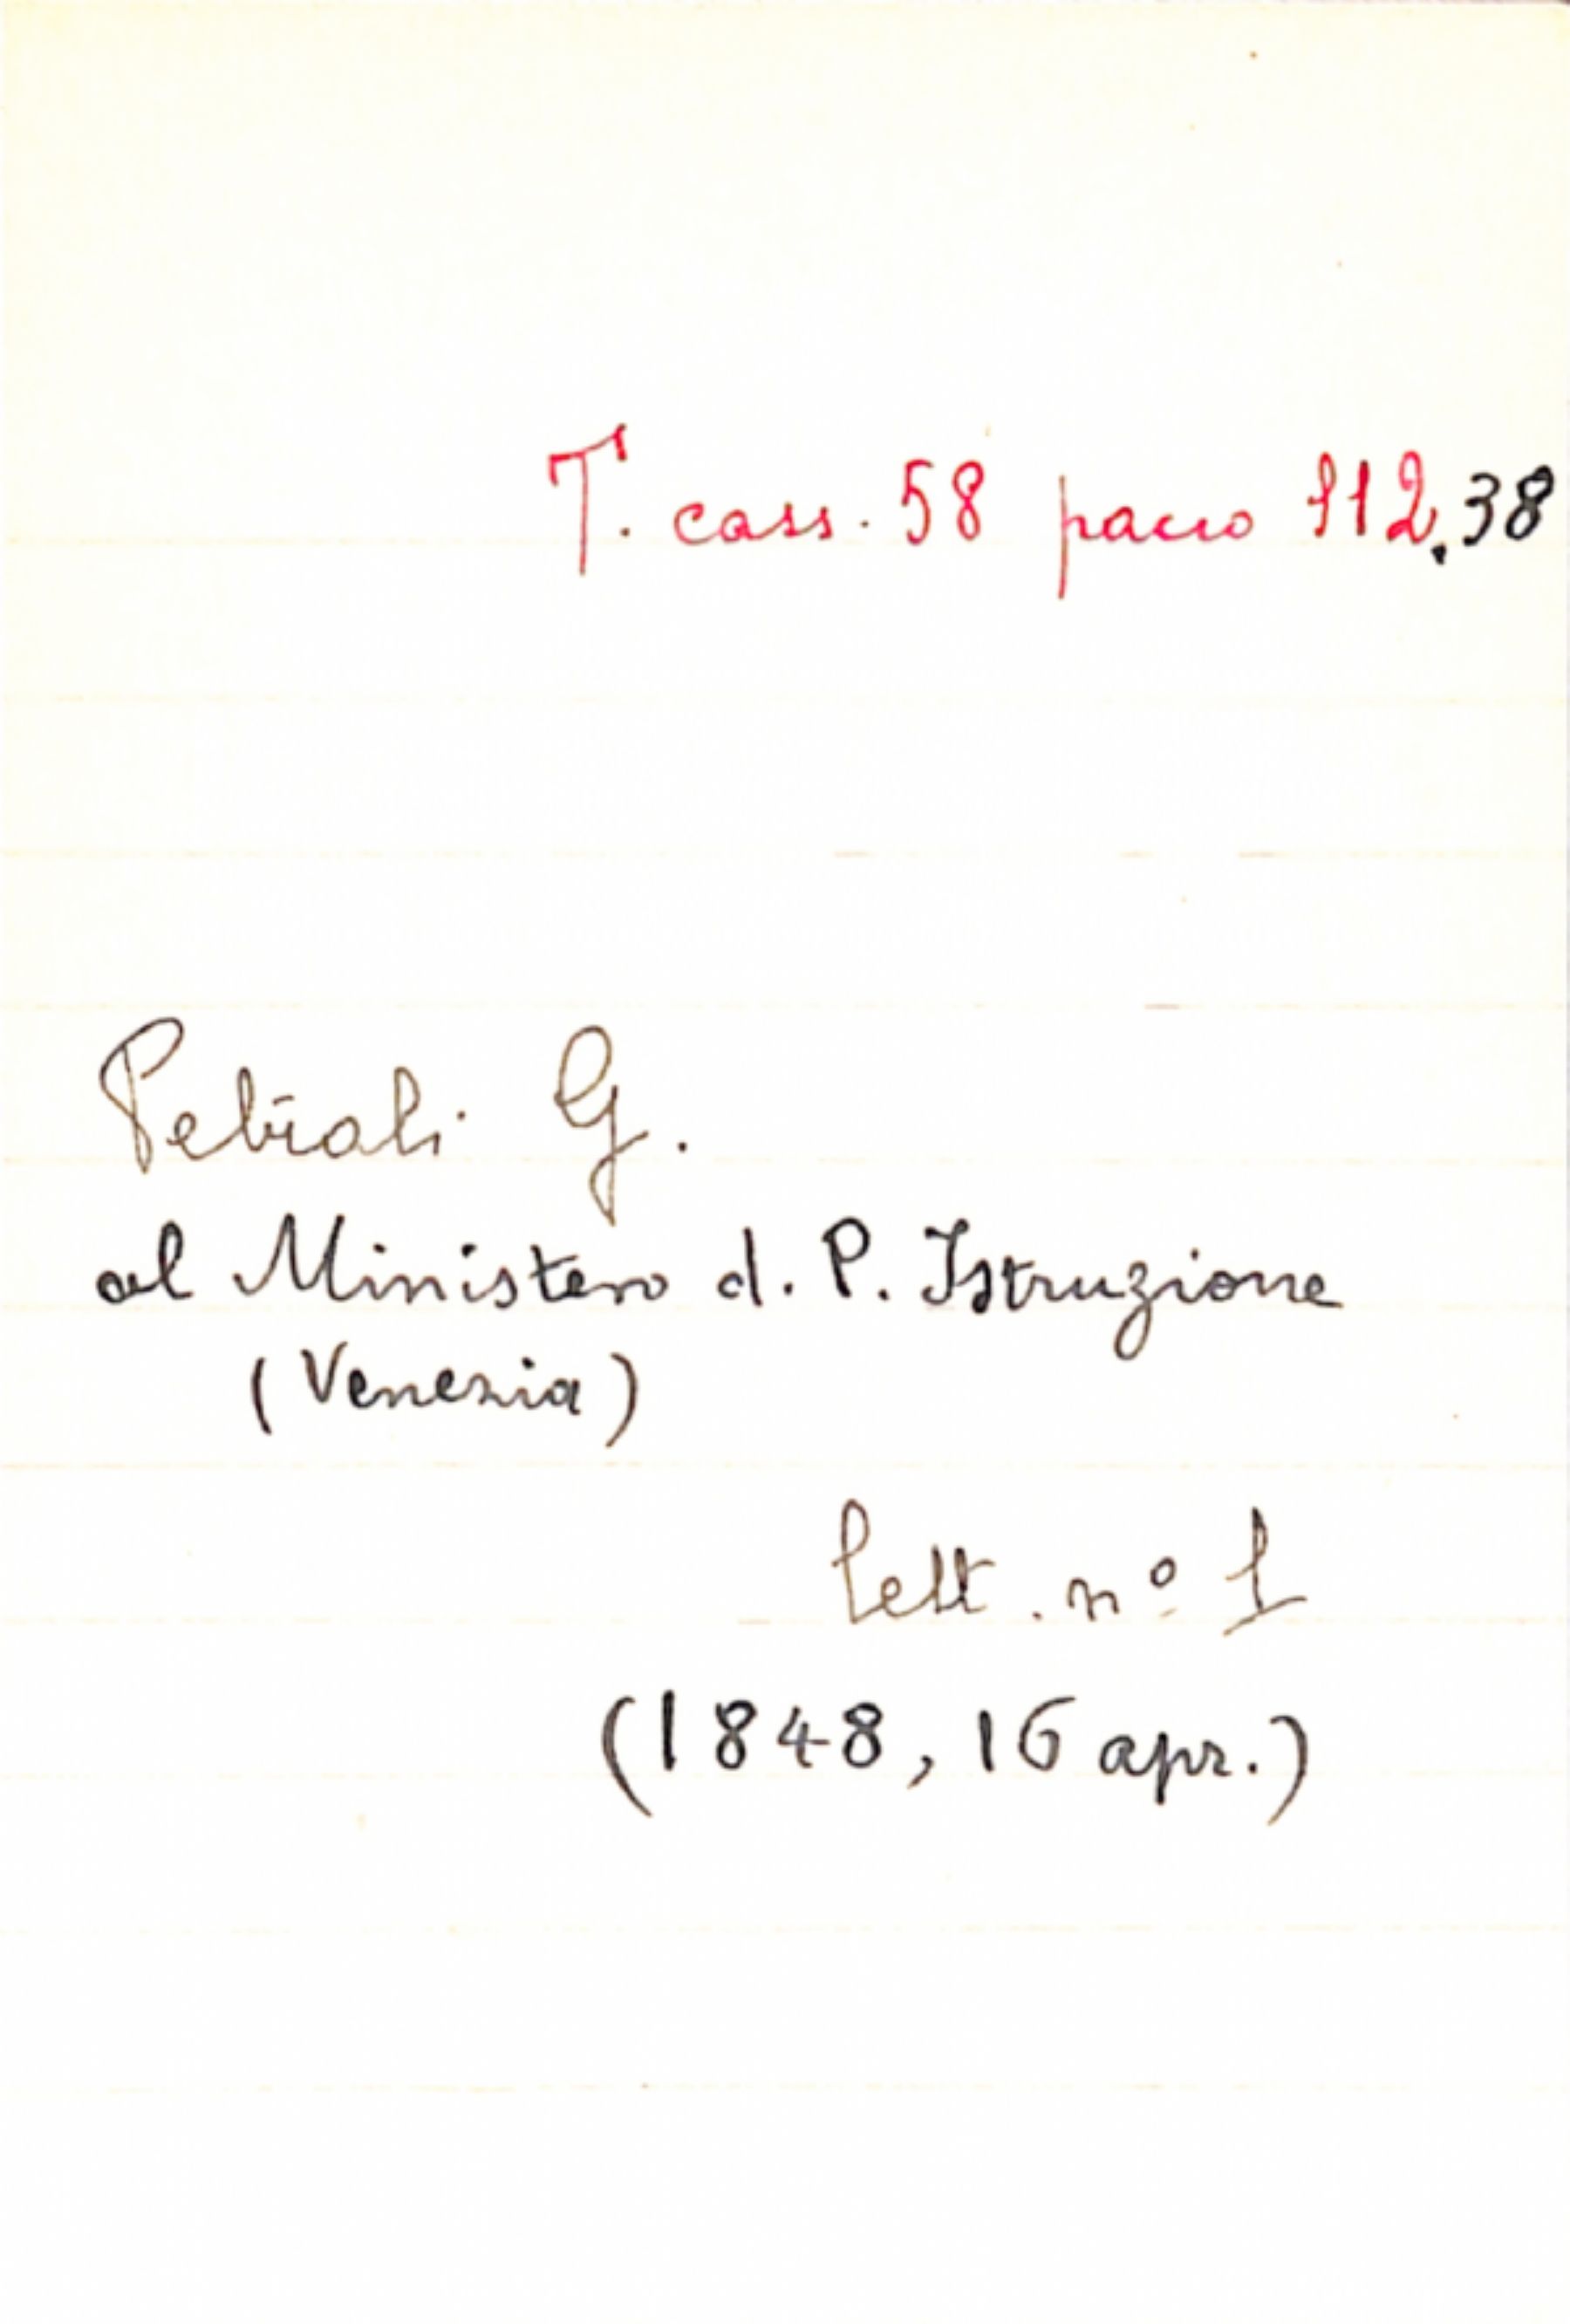 T. cass. 58 pacco 112.38
G.
al Ministero d. P. Istruzione
(Venezia)
lett. nº 1
(1848, 16 apr.)